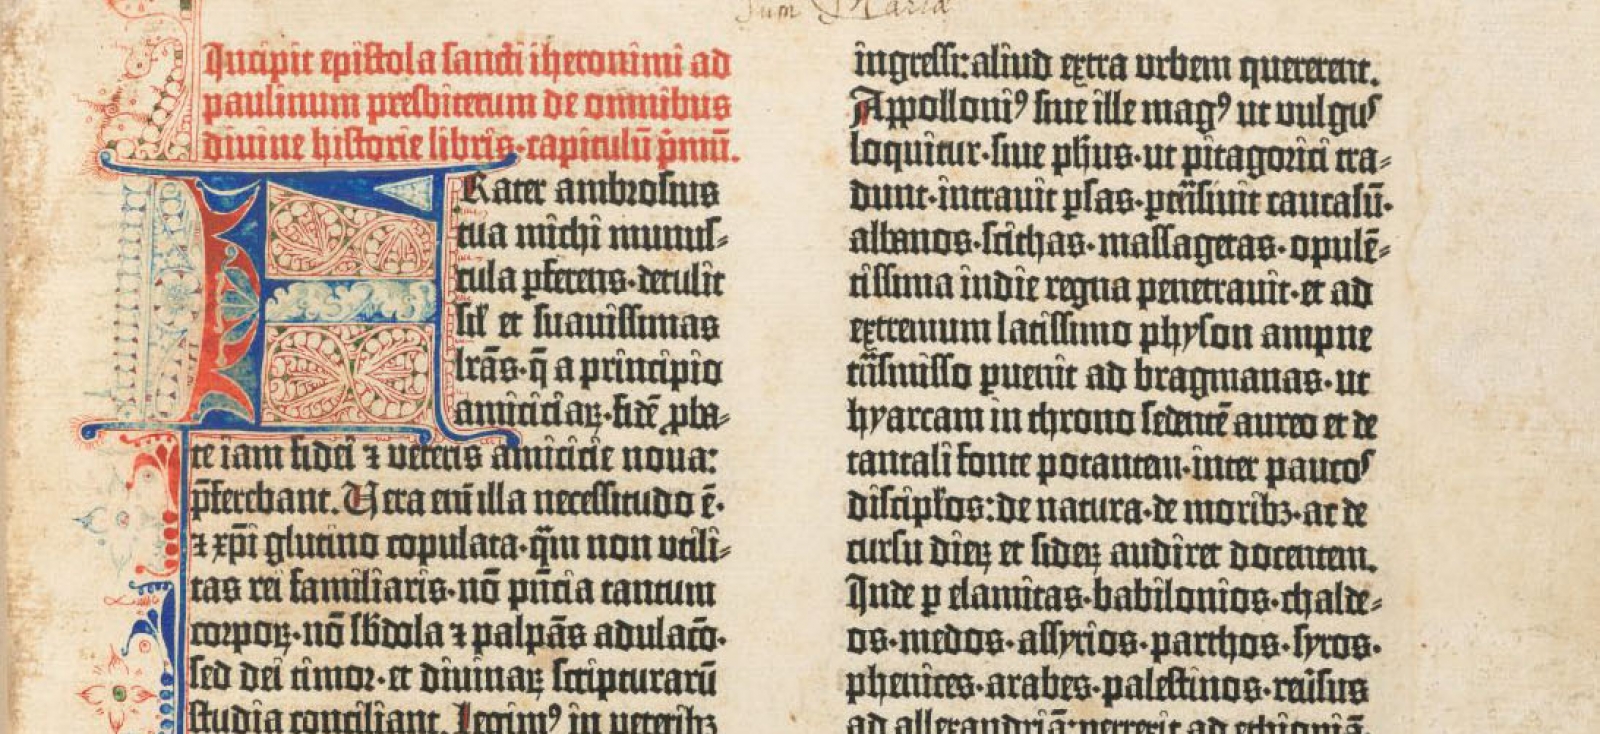 Sum Maria
Incipit epistola sancti iheronimi ad
paulinum presbiterum de omnibus
divine historie libris·capitulū p̄mū.
FRater ambrosius
tua michi munus⸗
cula ꝑferens·detulit
sil’ et suavissimas
lr̄as·q̄ a principio
amiciciaꝝ·fidē ꝓba⸗
te iam fidei ⁊ veteris amicicie nova:
p̄ferebant. Vera em̄ illa necessitudo ē·
⁊ xp̄i glutino copulata·q̄m non utili⸗
tas rei familiaris·nō pn̄cia tantum
corpoꝝ·nō sb̄dola ⁊ palpās adulac̄o·
sed dei timor·et divinaꝝ scripturarū
studia conciliant. Legimꝰ in veteribꝫ
ingressi: aliud extra urbem quererent.
Appolloniꝰ sive ille magꝰ ut vulgus
loquitur·sive ph̄us·ut pitagorici tra⸗
dunt·intravit ꝑsas·ꝑtn̄sivit caucasū·
albanos·scithas·massagetas·opulē⸗
tissima indie regna penetravit·et ad
extremum latissimo physon ampne
tn̄smisso ꝑvenit ad bragmanas·ut
hyarcam in throno sedentē aureo et de
tantali fonte potantem·inter paucos
discipl̄os: de natura·de moribꝫ·ac de
cursu dieꝝ et sideꝝ audiret docentem.
Inde ꝑ elamitas·babilonios·chalde⸗
os·medos·assyrios·parthos·syros·
phenices·arabes·palestinos·rev̄sus
ad allexandriā: perrexit ad ethiopiā·